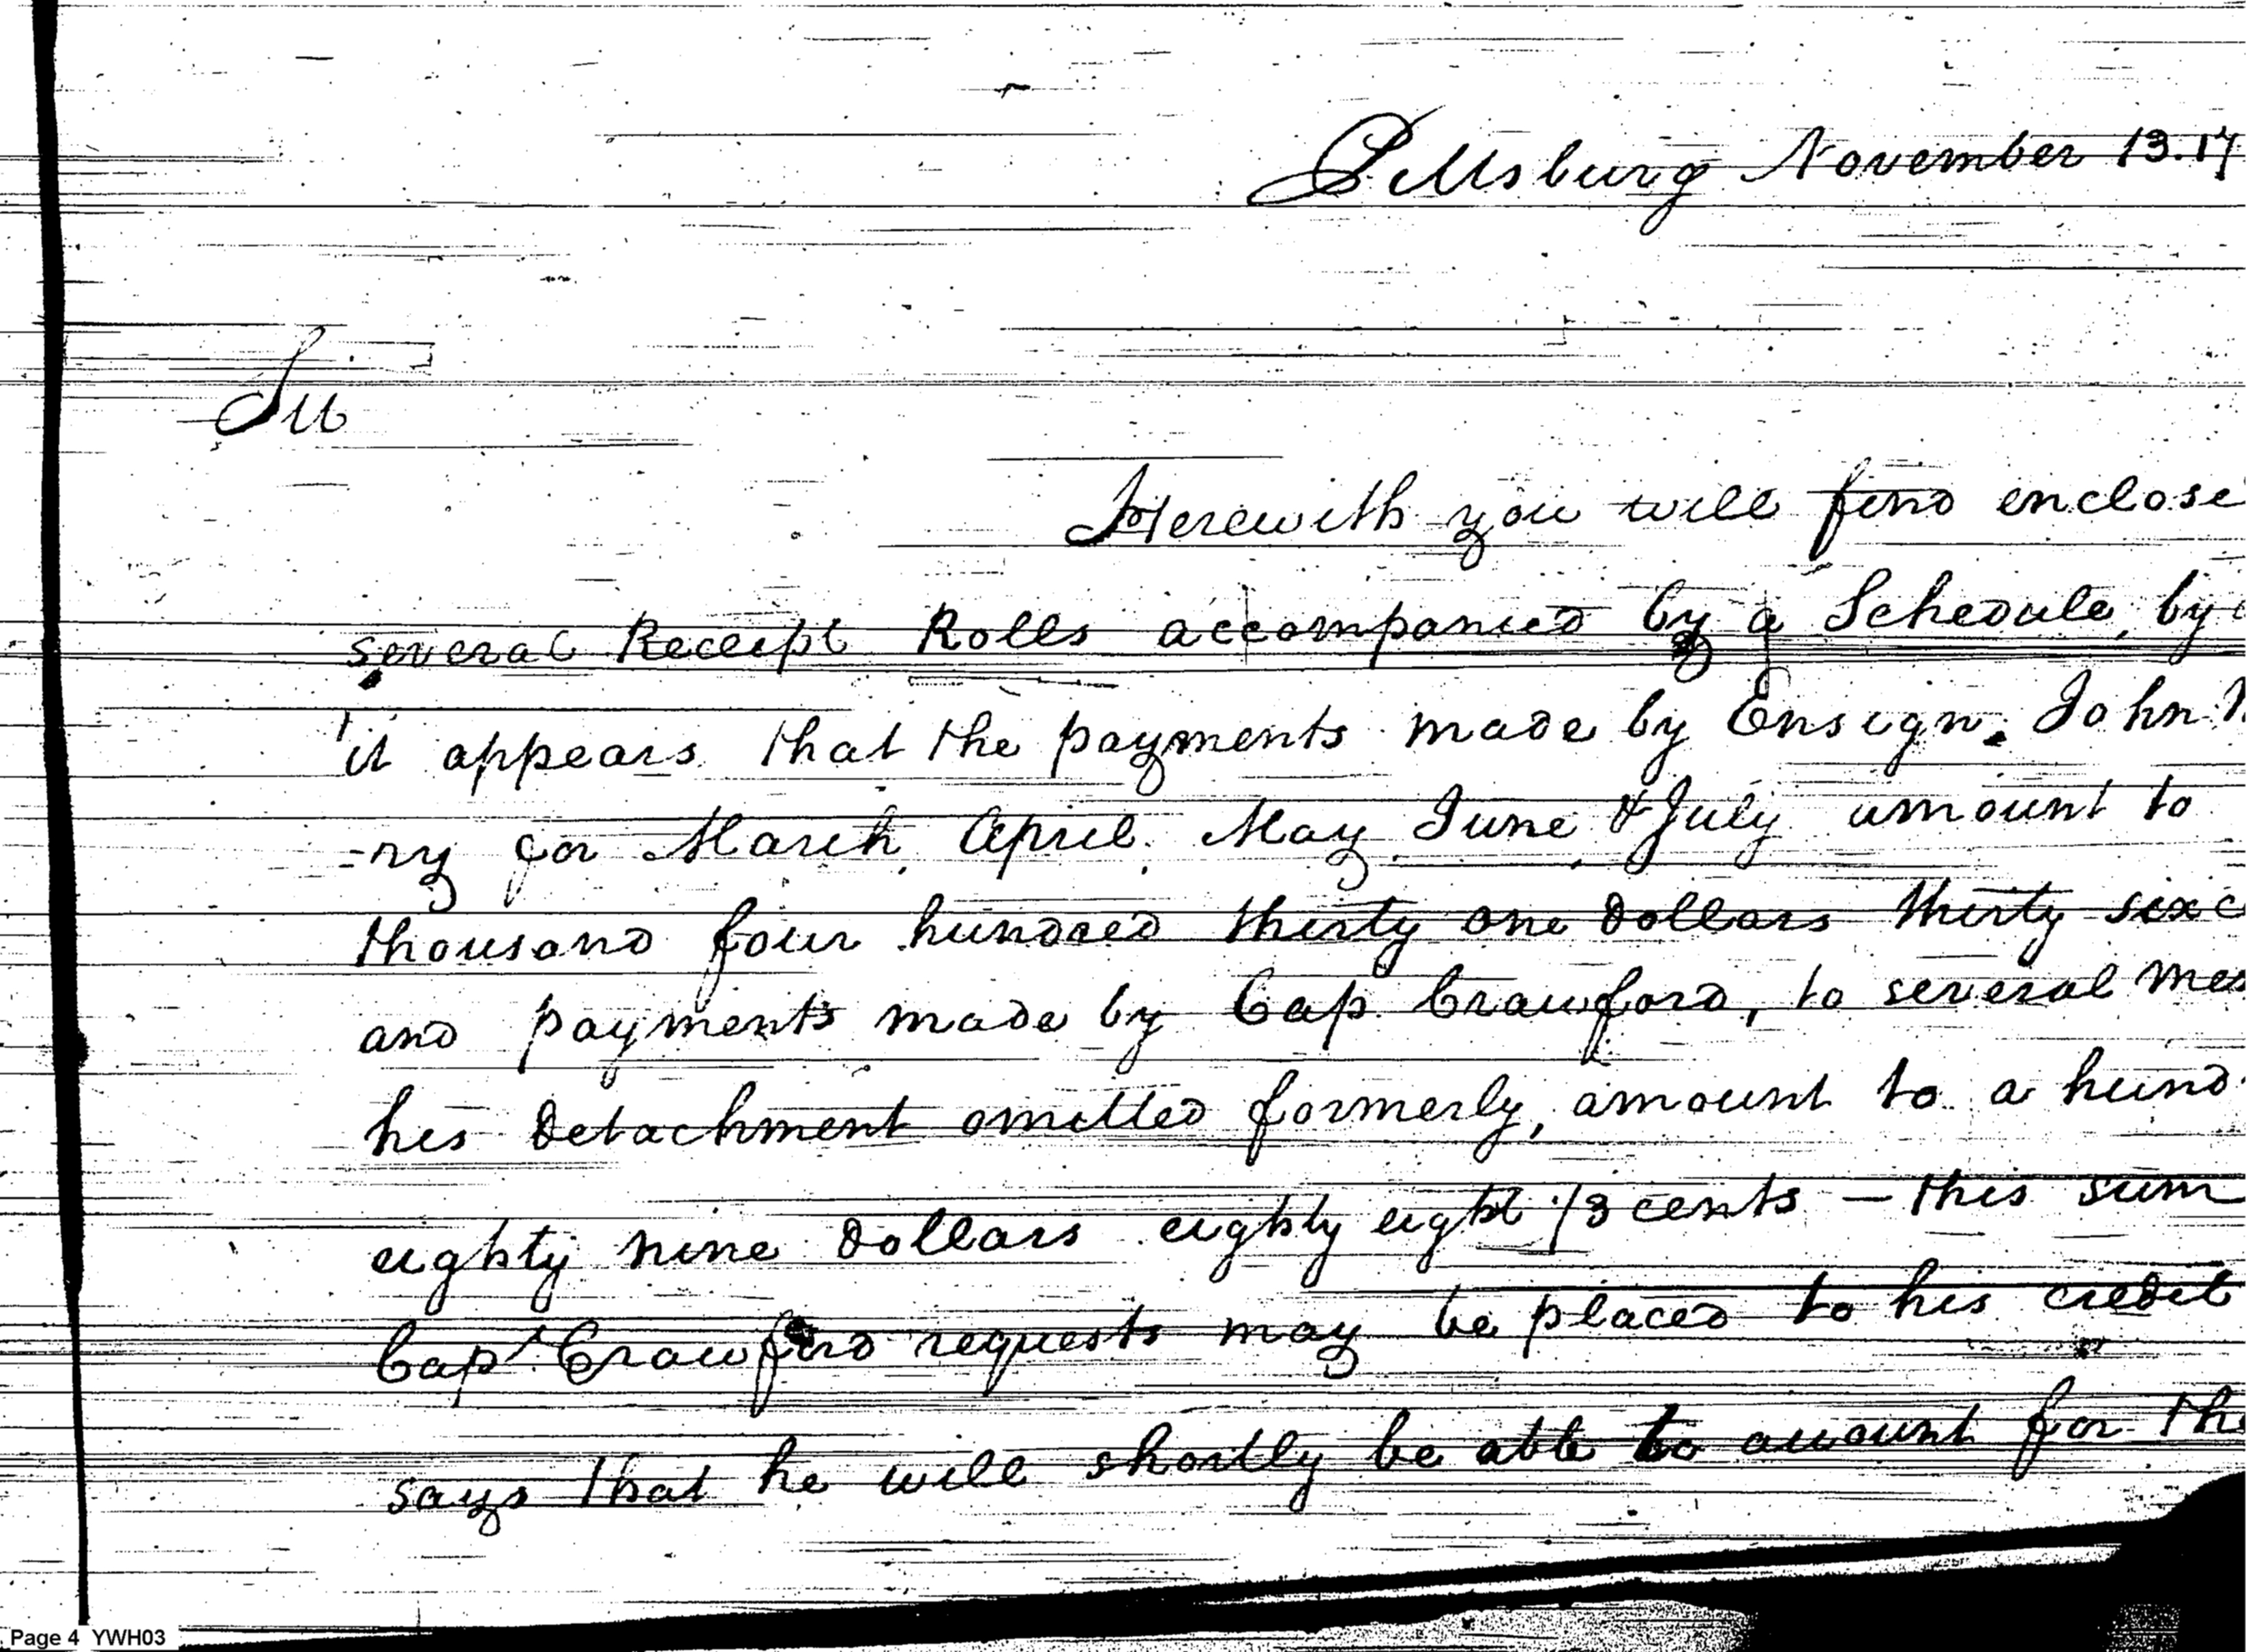 Pittsburg November 13. 17
Sir
Herewith you will find enclose
several Receipt Rolls accompanied by a Schedule, by
it appears that the payments made by Ensign John
-ry for March, April, May, June & July amount to
thousand four hundred thirty one Dollars thirty six c
and payments made by Cap. Crawford, to several me
his Detachment omitted formerly, amount to a hund
eighty nine Dollars eighty eight 1/3 cents — this sum
Capt Crawford requests may be placed to his credit
says that he will shortly be able to account for the
Page 4 YWH03